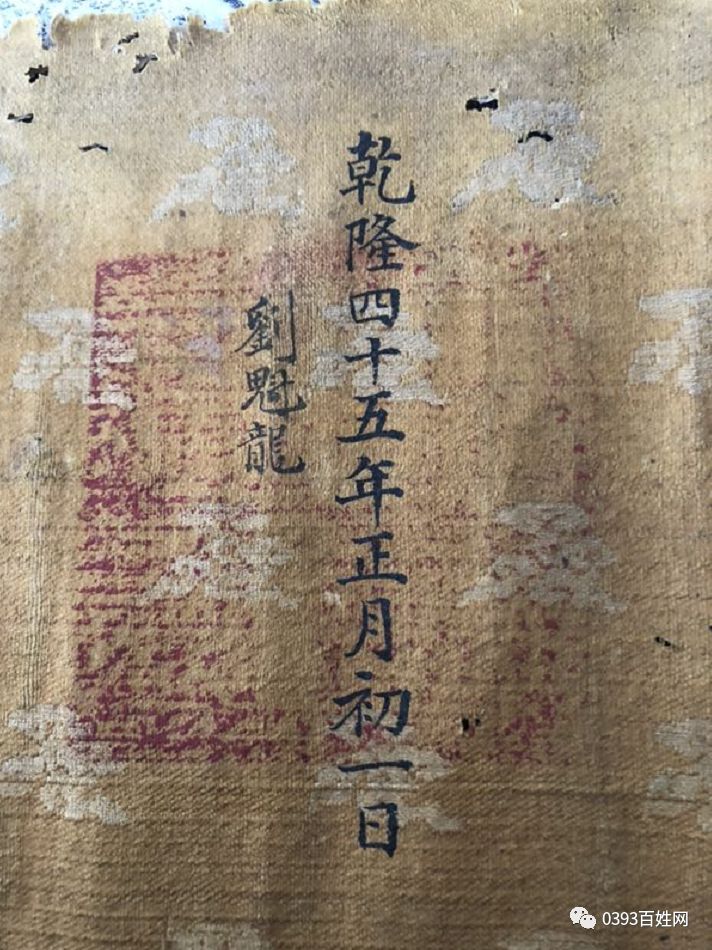 乾隆四十五年正月初一日
劉魁龍
0393百姓网